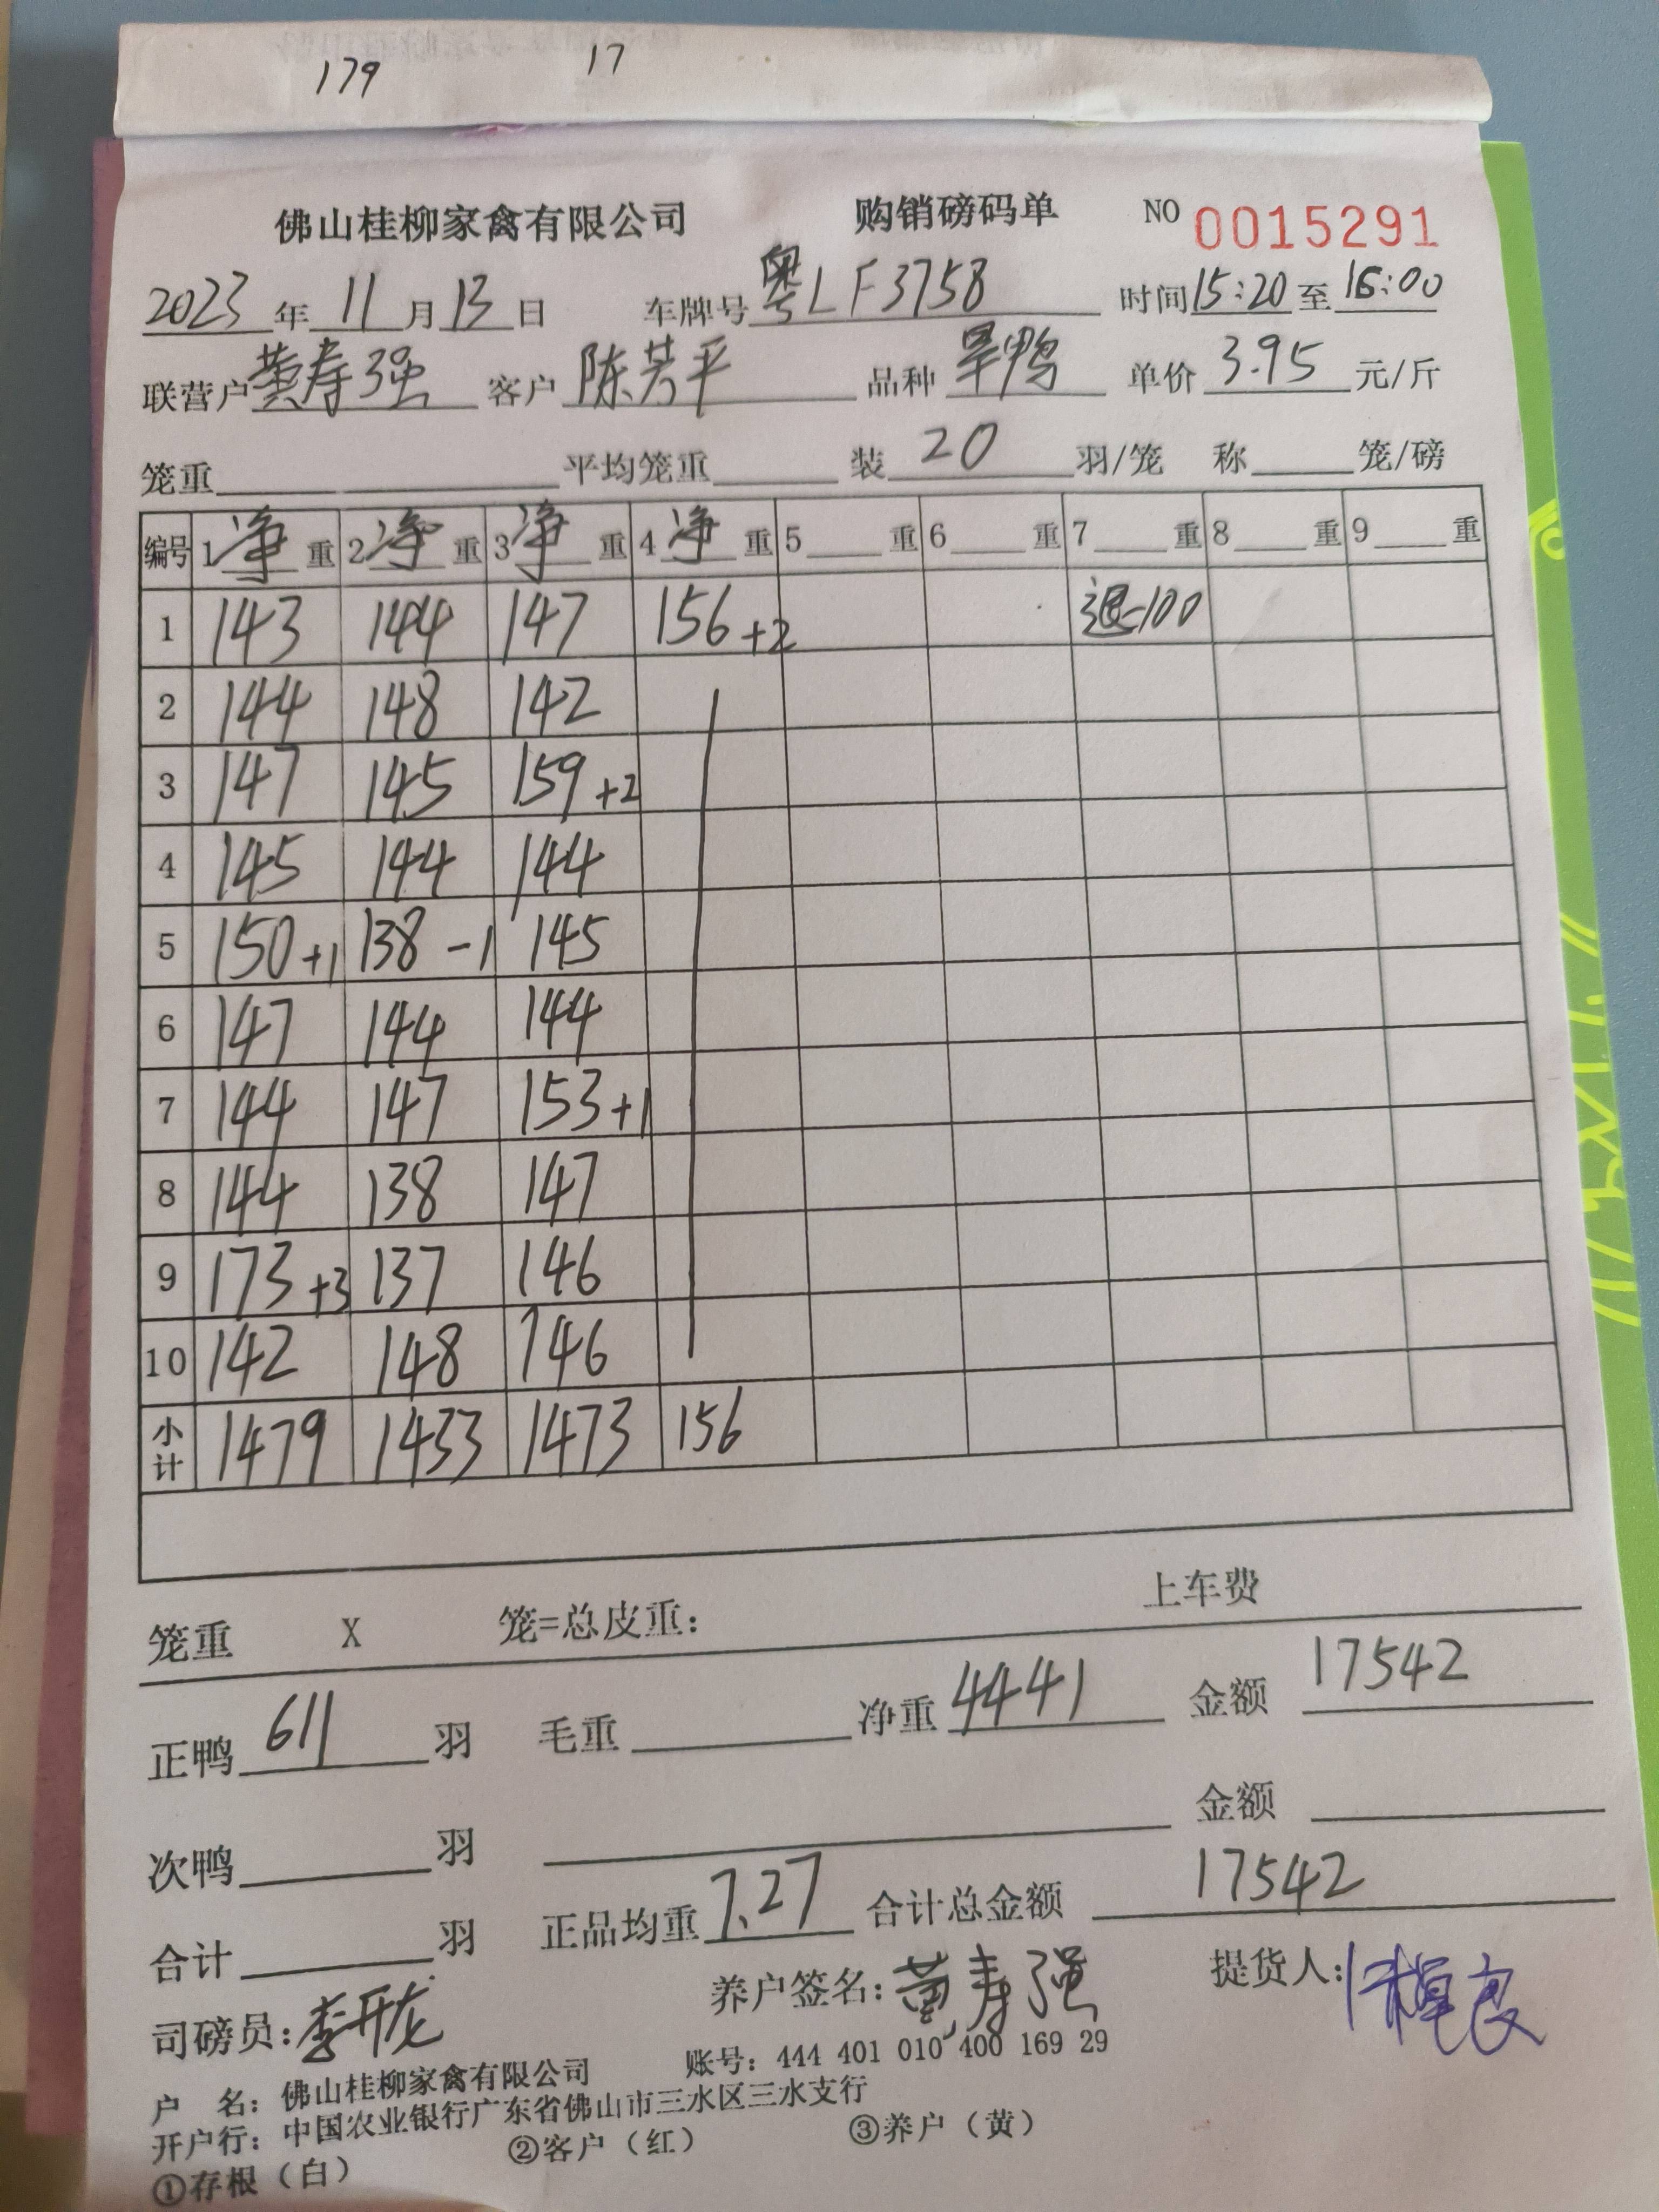 179 17
佛山桂柳家禽有限公司 购销磅码单 NO 0015291
2023年11月13日 车牌号 粤LF3758 时间15:20至16:00
联营户 黄寿强 客户 陈芳平 品种 旱鸭 单价 3.95 元/斤
笼重 平均笼重 装 20 羽/笼 称 笼/磅
编号 1净重 2净重 3净重 4净重 5重 6重 7重 8重 9重
1 143 144 147 156+2 退-100
2 144 148 142
3 147 145 159+2
4 145 144 144
5 150+1 138-1 145
6 147 144 144
7 144 147 153+1
8 144 138 147
9 173+3 137 146
10 142 148 146
小计 1479 1433 1473 156
上车费
笼重 X 笼=总皮重:
正鸭 611 羽 毛重 净重 4441 金额 17542
次鸭 羽 金额
合计 羽 正品均重 7.27 合计总金额 17542
司磅员:李开龙 养户签名:黄寿强 提货人:
户 名: 佛山桂柳家禽有限公司 账号: 444 401 010 400 169 29
开户行: 中国农业银行广东省佛山市三水区三水支行
①存根（白） ②客户（红） ③养户（黄）